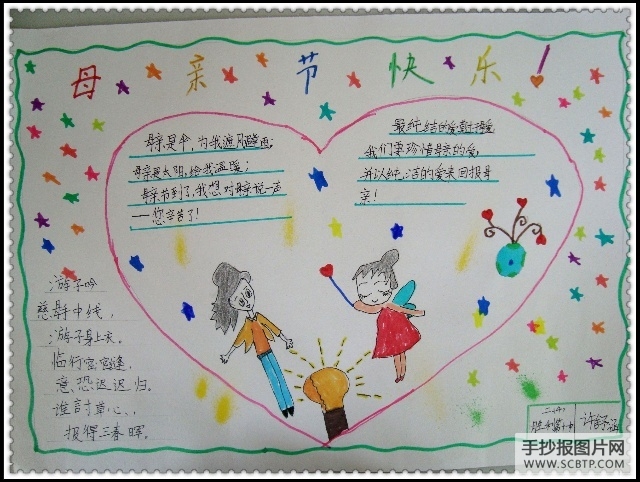 母亲节快乐！
母亲是伞，为我遮风避雨；
母亲是太阳，给我温暖；
母亲节到了，我想对母亲说一声
——您辛苦了！
最纯结的爱
我们要珍惜母亲的爱，
并以纯洁的爱来回报母
亲！
游子吟
慈母中线，
游子身上衣。
临行密密逢，
意恐迟迟归。
谁草心，
报得三春晖。
二(4)
胜利第十
许舒
手抄报图片网
WWW.SCBTP.COM